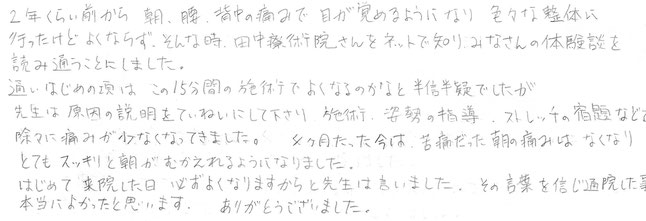 2年くらい前から 朝、腰、背中の痛みで目が覚めるようになり 色々な整体に
行ったけど よくならず、そんな時、田中療術院さんをネットで知り、みなさんの体験談を
読み通うことにしました。
通いはじめの頃は この15分間の施術でよくなるのかなと半信半疑でしたが
先生は原因の説明をていねいにして下さり 施術、姿勢の指導、ストレッチの宿題などで
除々に痛みが少なくなってきました。 4ヶ月たった今は、苦痛だった朝の痛みは なくなり
とても スッキリと朝が むかえれるようになりました。
はじめて 来院した日 必ずよくなりますからと先生は言いました。その言葉を信じ通院した事
本当によかったと思います。 ありがとうございました。